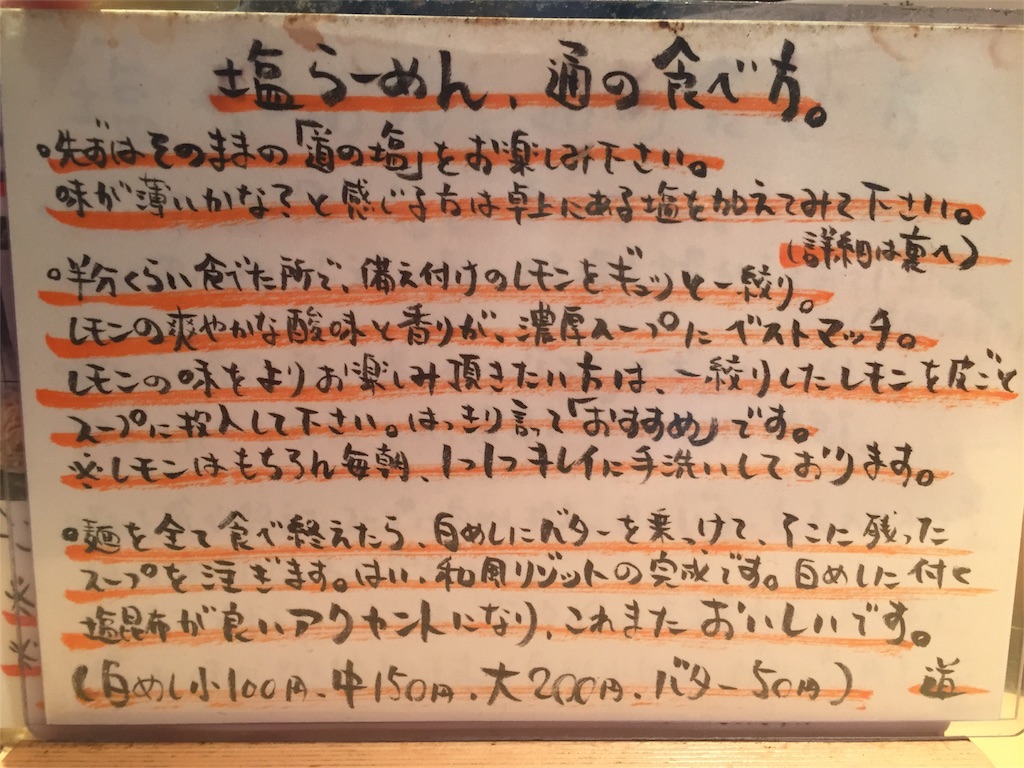 塩らーめん、通の食べ方。
。先ずはそのままの「道の塩」をお楽しみ下さい。
味が薄いかな?と感じる方は卓上にある塩を加えてみて下さい。
(詳細は裏へ)
。半分くらい食べた所で、備え付けのレモンをギュッと一絞り。
レモンの爽やかな酸味と香りが、濃厚スープにベストマッチ。
レモンの味をよりお楽しみ頂きたい方は、一絞りしたレモンを皮ごと
スープに投入して下さい。はっきり言って「おすすめ」です。
※レモンはもちろん毎朝、1つ1つキレイに手洗いしております。
。麺を全て食べ終えたら、白めしにバターを乗っけて、そこに残った
スープを注ぎます。はい、和風リゾットの完成です。白めしに付く
塩昆布が良いアクセントになり、これまたおいしいです。
(白めし小100円、中150円、大200円、バター50円) 道